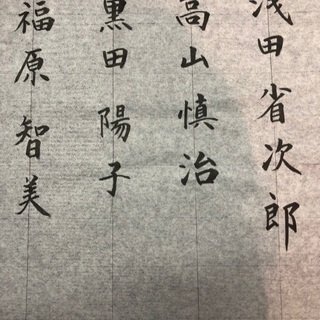 浅田省次郎
高山慎治
黒田陽子
福原智美